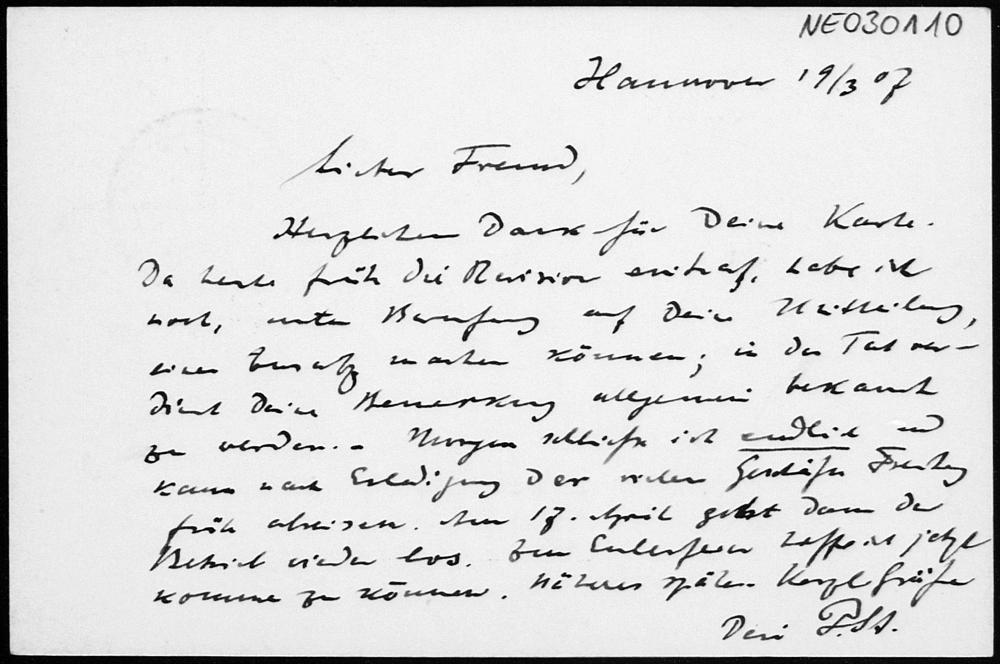 NE030110
Hannover 19/3 07
Lieber Freund,
Herzlichen Dank für Deine Karte.
Da heute früh die Revision eintraf, habe ich
noch, unter Berufung auf Deine Mitteilung,
einen Zusatz machen können; in der Tat ver-
dient Deine Bemerkung allgemein bekannt
zu werden. – Morgen schließe ich endlich und
kann nach Erledigung der vielen Geschäfte Freitag
früh abreisen. Am 17. April geht dann der
Betrieb wieder los. Zur Eulerfeier hoffe ich jetzt
komme zu können. Näheres später. Herzl Grüße
Dein P. St.